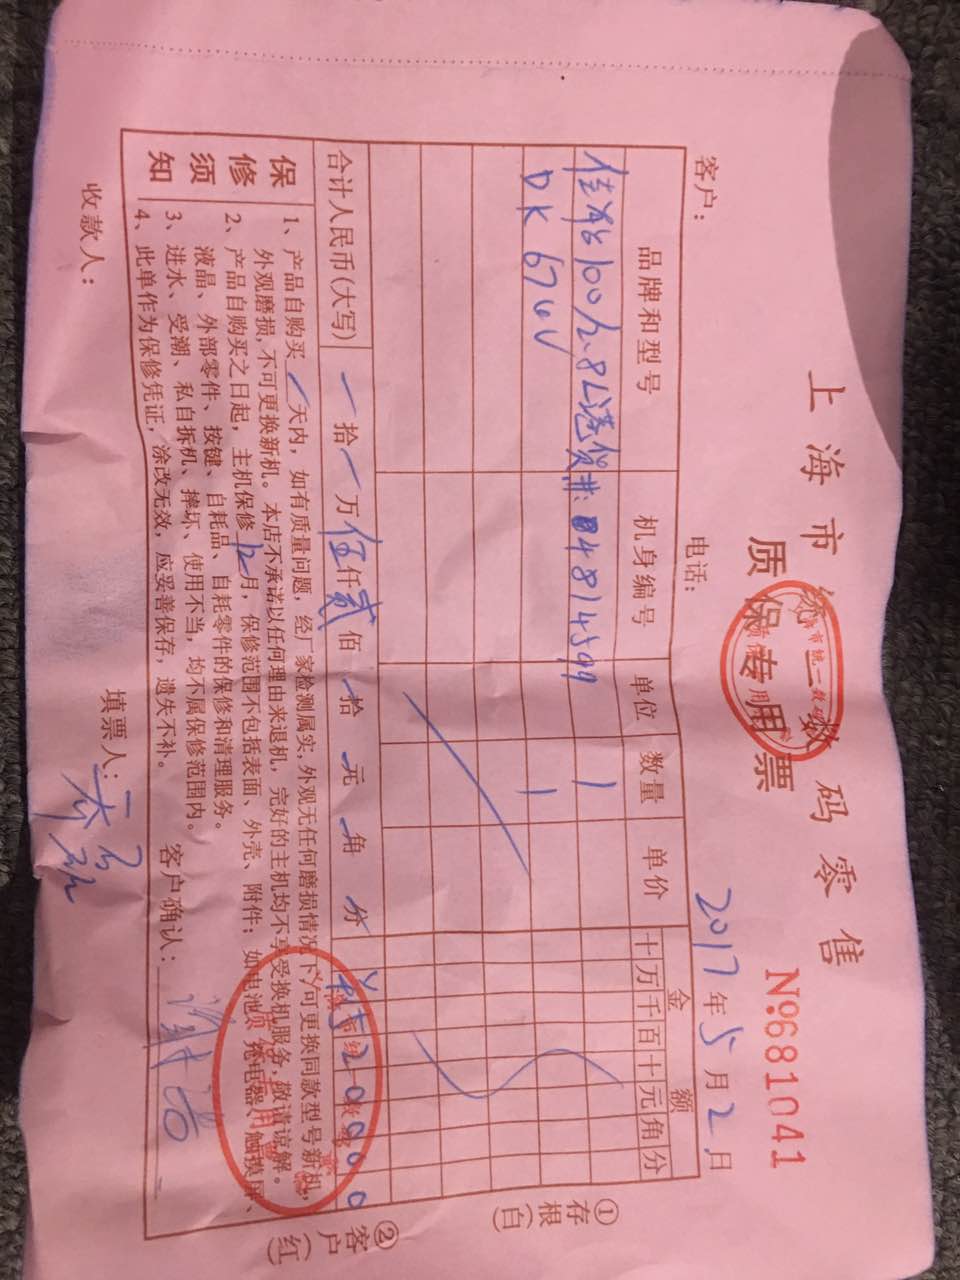 上海市统一数码零售
质保专用票
№681041
2017年5月2日
客户：
电话：
品牌和型号 机身编号 单位 数量 单价 金额
十万千百十元角分
佳能100 2.8L 84814599 1
DK 676V 1
合计人民币(大写) 拾 万伍仟贰佰 拾 元 角 分 ¥520000
保修须知
1、产品自购买 天内，如有质量问题，经厂家检测属实，外观无任何磨损情况下，可更换同款型号新机，
外观磨损，不可更换新机。本店不承诺以任何理由来退机，完好的主机均不享受换机服务，敬请谅解。
2、产品自购买之日起，主机保修12月，保修范围不包括表面、外壳、附件；如电池、充电器、触摸屏、
液晶、外部零件、按键、自耗品、自耗零件的保修和清理服务。
3、进水、受潮、私自拆机、摔坏、使用不当，均不属保修范围内。
4、此单作为保修凭证，涂改无效，应妥善保存，遗失不补。
客户确认：
收款人：
填票人：
①存根(白)
②客户(红)